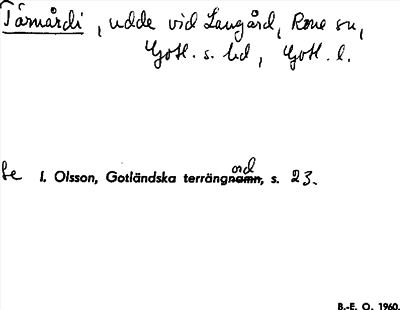 Tärnårdi, udde vid Langård, Rone sn,
Gotl. s. hd, Gotl. l.
Se I. Olsson, Gotländska terrängord, s. 23.
B.-E. O. 1960.